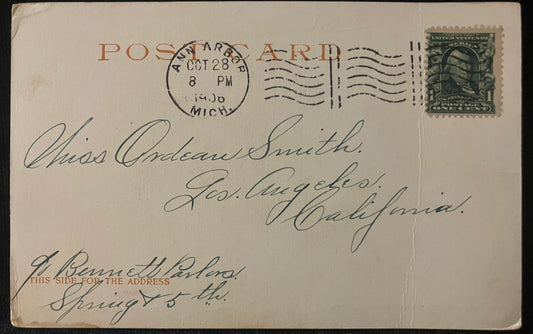 POST CARD
ANN ARBOR
OCT 28
8 PM
1906
MICH.
UNITED STATES OF AMERICA
POSTAGE
ONE CENT
Miss Ordean Smith.
Los. Angeles.
California.
c/o Bennett Parlors.
THIS SIDE FOR THE ADDRESS
Spring & 5th.